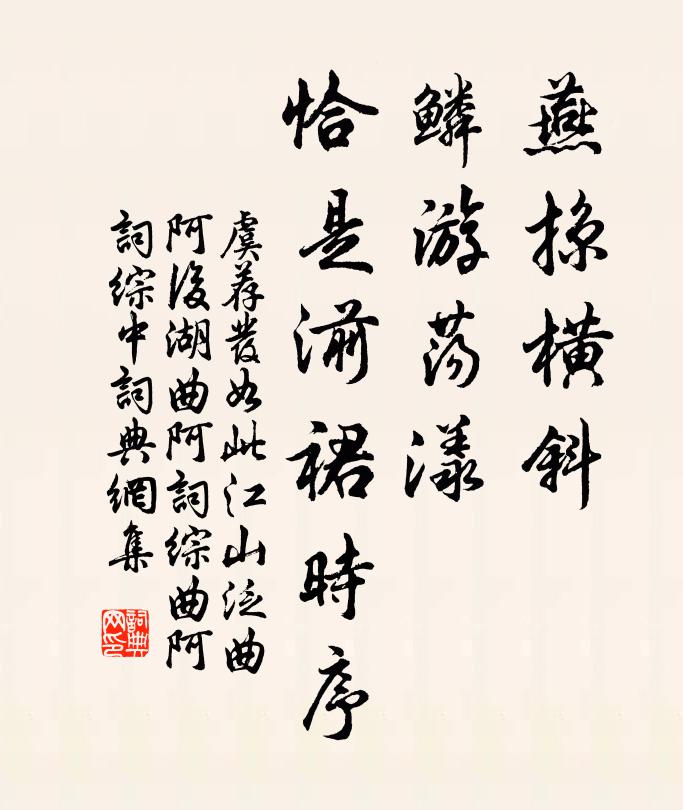 燕掠橫斜
鱗游蕩漾
恰是湔裙時序
虞荐發如此江山泛曲
阿後湖曲阿詞綜曲阿
詞綜中詞典網集
詞典网印